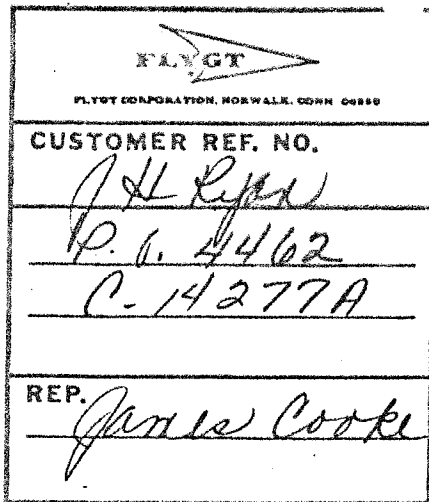 FLYGT
FLYGT CORPORATION, NORWALK, CONN 06856
CUSTOMER REF. NO.
J H Ryan
P. O. 4462
C-14277A
REP. James Cooke